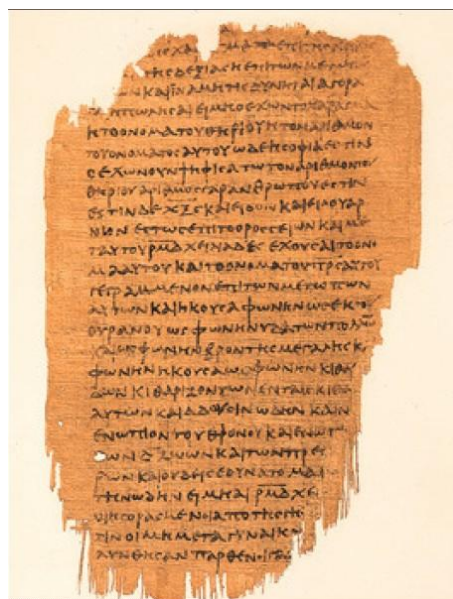 ΧΑΡ ΜΑ ΕΠΙ ΤΗϹ
ΤΗϹ ΔΕΞΙΑϹ Η ΕΠΙ ΤΩΝ ΜΕΤ
ΩΝ ΚΑΙ ΙΝΑ ΜΗ ΤΙϹ ΔΥΝΗΤΑΙ ΑΓΟΡΑ
Η ΠΩΛΗϹΑΙ ΕΙ ΜΗ Ο ΕΧΩΝ ΤΟ ΧΑΡΑΓΜΑ
Η ΤΟ ΟΝΟΜΑ ΤΟΥ ΘΗΡΙΟΥ Η ΤΟΝ ΑΡΙΘΜΟΝ
ΤΟΥ ΟΝΟΜΑΤΟϹ ΑΥΤΟΥ ΩΔΕ Η ϹΟΦΙΑ ΕϹΤΙΝ
Ο ΕΧΩΝ ΟΥΝ ΨΗΦΙϹΑΤΩ ΤΟΝ ΑΡΙΘΜΟΝ ΤΟΥ
ΘΗΡΙΟΥ ΑΡΙΘΜΟϹ ΓΑΡ ΑΝΘΡΩΠΟΥ ΕϹΤΙΝ
ΕϹΤΙΝ ΔΕ ΧΞϚ ΚΑΙ ΕΙΔΟΝ ΚΑΙ ΕΙΔΟΥ ΑΡ
ΝΙΟΝ ΕϹΤΩϹ ΕΠΙ ΤΟ ΟΡΟϹ ϹΕΙΩΝ ΚΑΙ ΜΕ
Τ ΑΥΤΟΥ ΡΜΔ ΧΕΙΛΙΑΔΕϹ ΕΧΟΥϹΑΙ ΤΟ ΟΝΟ
ΜΑ ΑΥΤΟΥ ΚΑΙ ΤΟ ΟΝΟΜΑ ΤΟΥ ΠΡϹ ΑΥΤΟΥ
ΓΕΓΡΑΜΜΕΝΟΝ ΕΠΙ ΤΩΝ ΜΕΤΩΠΩΝ
ΑΥΤΩΝ ΚΑΙ ΗΚΟΥϹΑ ΦΩΝΗΝ ΩϹ ΕΚ ΤΟΥ
ΟΥΡΑΝΟΥ ΩϹ ΦΩΝΗΝ ΥΔΑΤΩΝ ΠΟΛΛΩ
ΚΑΙ ΩϹ ΦΩΝΗΝ ΒΡΟΝΤΗϹ ΜΕΓΑΛΗϹ Κ
ΦΩΝΗΝ ΗΚΟΥϹΑ ΩϹ ΦΩΝΗΝ ΚΙΘΑΡ
ΔΩΝ ΚΙΘΑΡΙΖΟΝΤΩΝ ΕΝ ΤΑΙϹ ΚΙΘΑ
ΑΥΤΩΝ ΚΑΙ ΑΔΟΥϹΙΝ ΩΔΗΝ ΚΑΙΝ
ΕΝΩΠΙΟΝ ΤΟΥ ΘΡΟΝΟΥ ΚΑΙ ΕΝΩΠ
ΤΩΝ Δ ΖΩΩΝ ΚΑΙ ΤΩΝ ΠΡΕϹ
ΡΩΝ ΚΑΙ ΟΥΔΕΙϹ ΕΔΥΝΑΤΟ ΜΑΘ
ΤΗΝ ΩΔΗΝ ΕΙ ΜΗ ΑΙ ΡΜΔ ΧΕΙ
ΟΙ ΗΓΟΡΑϹΜΕΝΟΙ ΑΠΟ ΤΗϹ ΓΗϹ
ΤΙΝ ΟΙ ΜΕΤΑ ΓΥΝΑΙΚΩ
ΛΥΝΘΗϹΑΝ ΠΑΡΘΕΝΟΙ